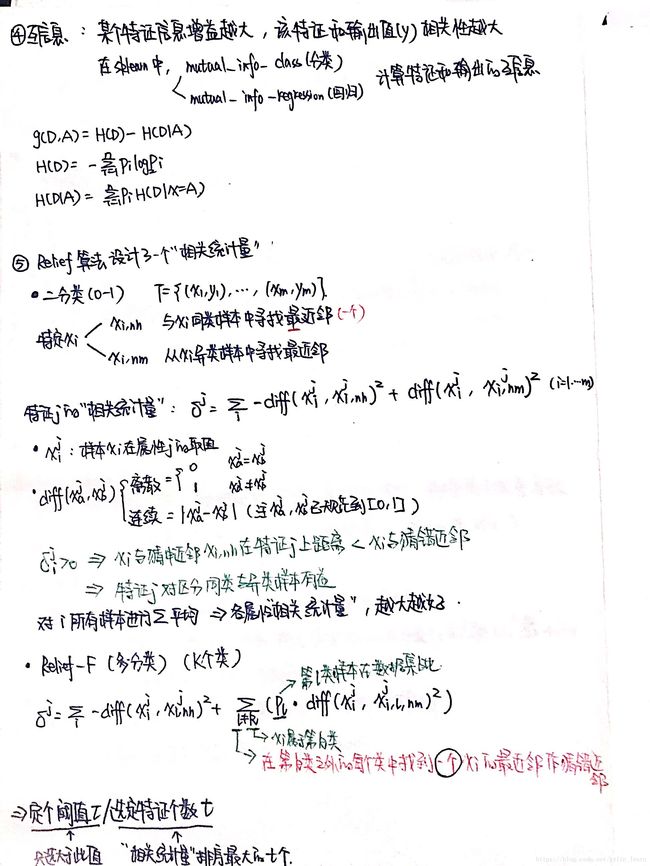 ④互信息：某个特征信息增益越大，该特征和输出值(y)相关性越大
在sklearn中，mutual_info_class(分类)
mutual_info_regression(回归) 计算特征和输出的互信息
g(D,A) = H(D) - H(D|A)
H(D) = -∑pilogpi
H(D|A) = ∑piH(D|X=A)
⑤ Relief算法设计了一个"相关统计量"
• 二分类(0-1) T={(x1,y1),…,(xm,ym)}
特定xi
xi,nh 与xi同类样本中寻找最近邻(一个)
xi,nm 从xi异类样本中寻找最近邻
特征j的"相关统计量"：δ^j = ∑i -diff(xi^j, xi,nh^j)² + diff(xi^j, xi,nm^j)² (i=1…m)
• xi^j：样本xi在属性j的取值
• diff(xa^j,xb^j) { 离散 = { 0 xa^j=xb^j
1 xa^j≠xb^j
连续 = |xa^j-xb^j| (注xa^j,xb^j已规范到[0,1])
δi^j>0 ⇒ xi与猜中近邻xi,nh在特征j上距离 < xi与猜错近邻
⇒ 特征j对区分同类与异类样本有益
对i所有样本进行∑平均 ⇒ 各属性"相关统计量"，越大越好.
• Relief-F (多分类) (K个类)
第l类样本在数据集占比
δ^j = ∑i -diff(xi^j, xi,nh^j)² + ∑l≠k (Pl · diff(xi^j, xi,l,nm^j)²)
xi属于第k类
在第k类之外的每个类中找到一个xi的最近邻作猜错近邻
⇒定个阈值τ/选定特征个数t
只选大于此值 "相关统计量"排序最大的t个.